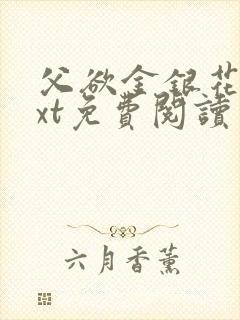 父欲金銀花
xt免費閱讀
六月香薰